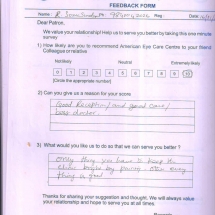 FEEDBACK FORM
Name : Reg.: Date :
Dear Patron,
We value your relationship! Help us to serve you better by taking this one minute
survey
1) How likely are you to recommend American Eye Care Centre to your friend/
Colleague/or relative
Not likely Neutral Extremely likely
0 1 2 3 4 5 6 7 8 9 10
(Circle the appropriate number)
2) Can you give us a reason for your score
Good Reception/ and good care/
best doctor.
3) What would you like us to do so that we can serve you better ?
Only thing you have to keep the
Thanks for sharing your suggestion and thought. We will always value
your relationship and hope to serve you at all times.